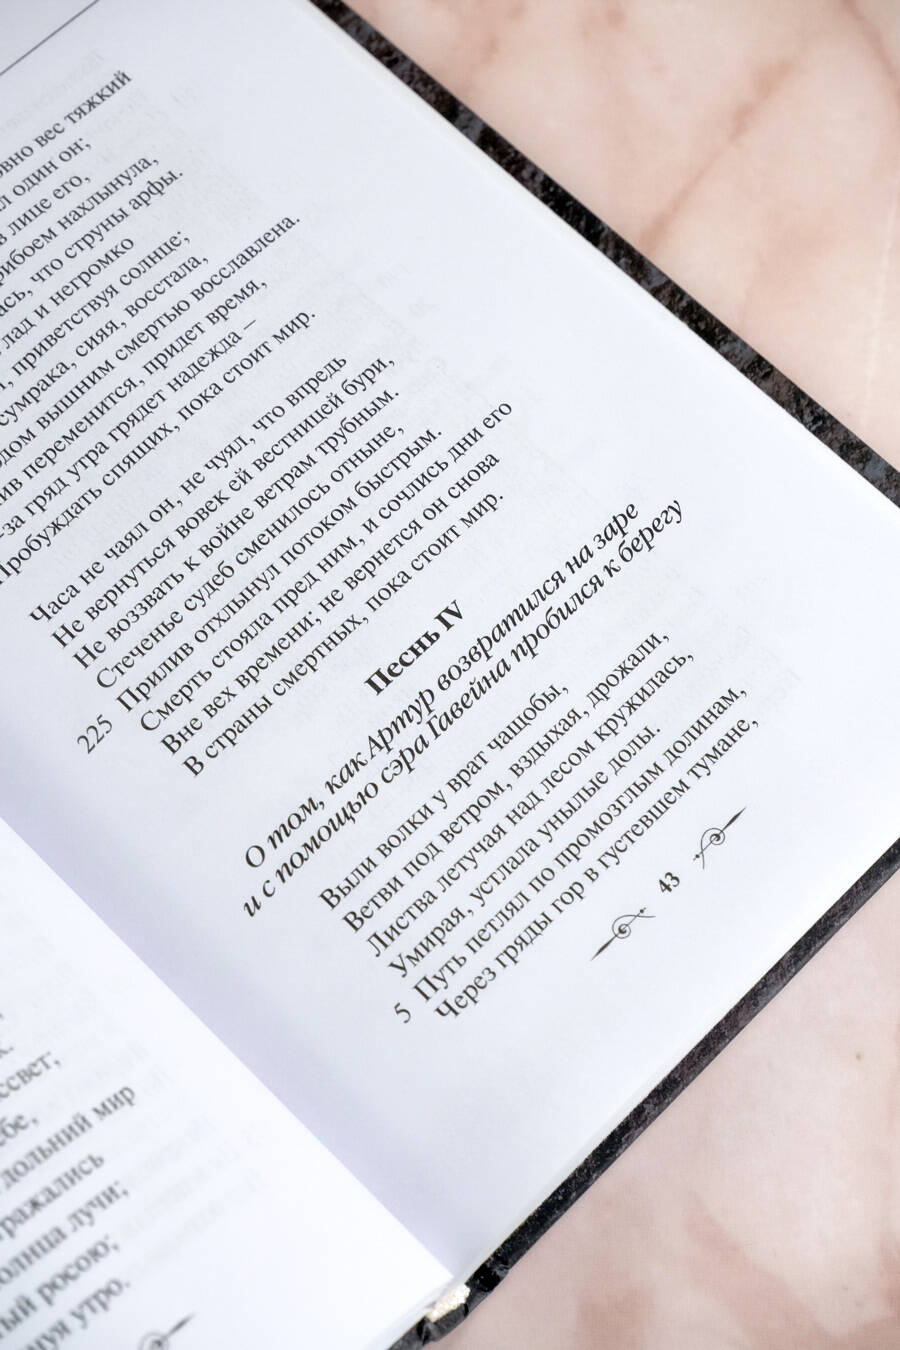 вес тяжкий
один он;
в лице его,
нахлынула,
что струны арфы.
лад и негромко
приветствуя солнце;
сумрака, сияя, восстала,
вышним смертью восславлена.
переменится, придет время,
-за гряд утра грядет надежда –
Пробуждать спящих, пока стоит мир.
Часа не чаял он, не чуял, что впредь
Не вернуться вовек ей вестницей бури,
Не воззвать к войне ветрам трубным.
Стеченье судеб сменилось отныне,
225 Прилив отхлынул потоком быстрым.
Смерть стояла пред ним, и сочлись дни его
Вне всех времени; не вернется он снова
В страны смертных, пока стоит мир.
Песнь IV
О том, как Артур возвратился на заре
и с помощью сэра Гавейна пробился к берегу
Выли волки у врат чащобы,
Ветви под ветром, вздыхая, дрожали,
Листва летучая над лесом кружилась,
Умирая, устлала унылые долы.
5 Путь петлял по промозглым долинам,
Через гряды гор в густевшем тумане,
43
дольний мир
лучи;
росою;
утро.